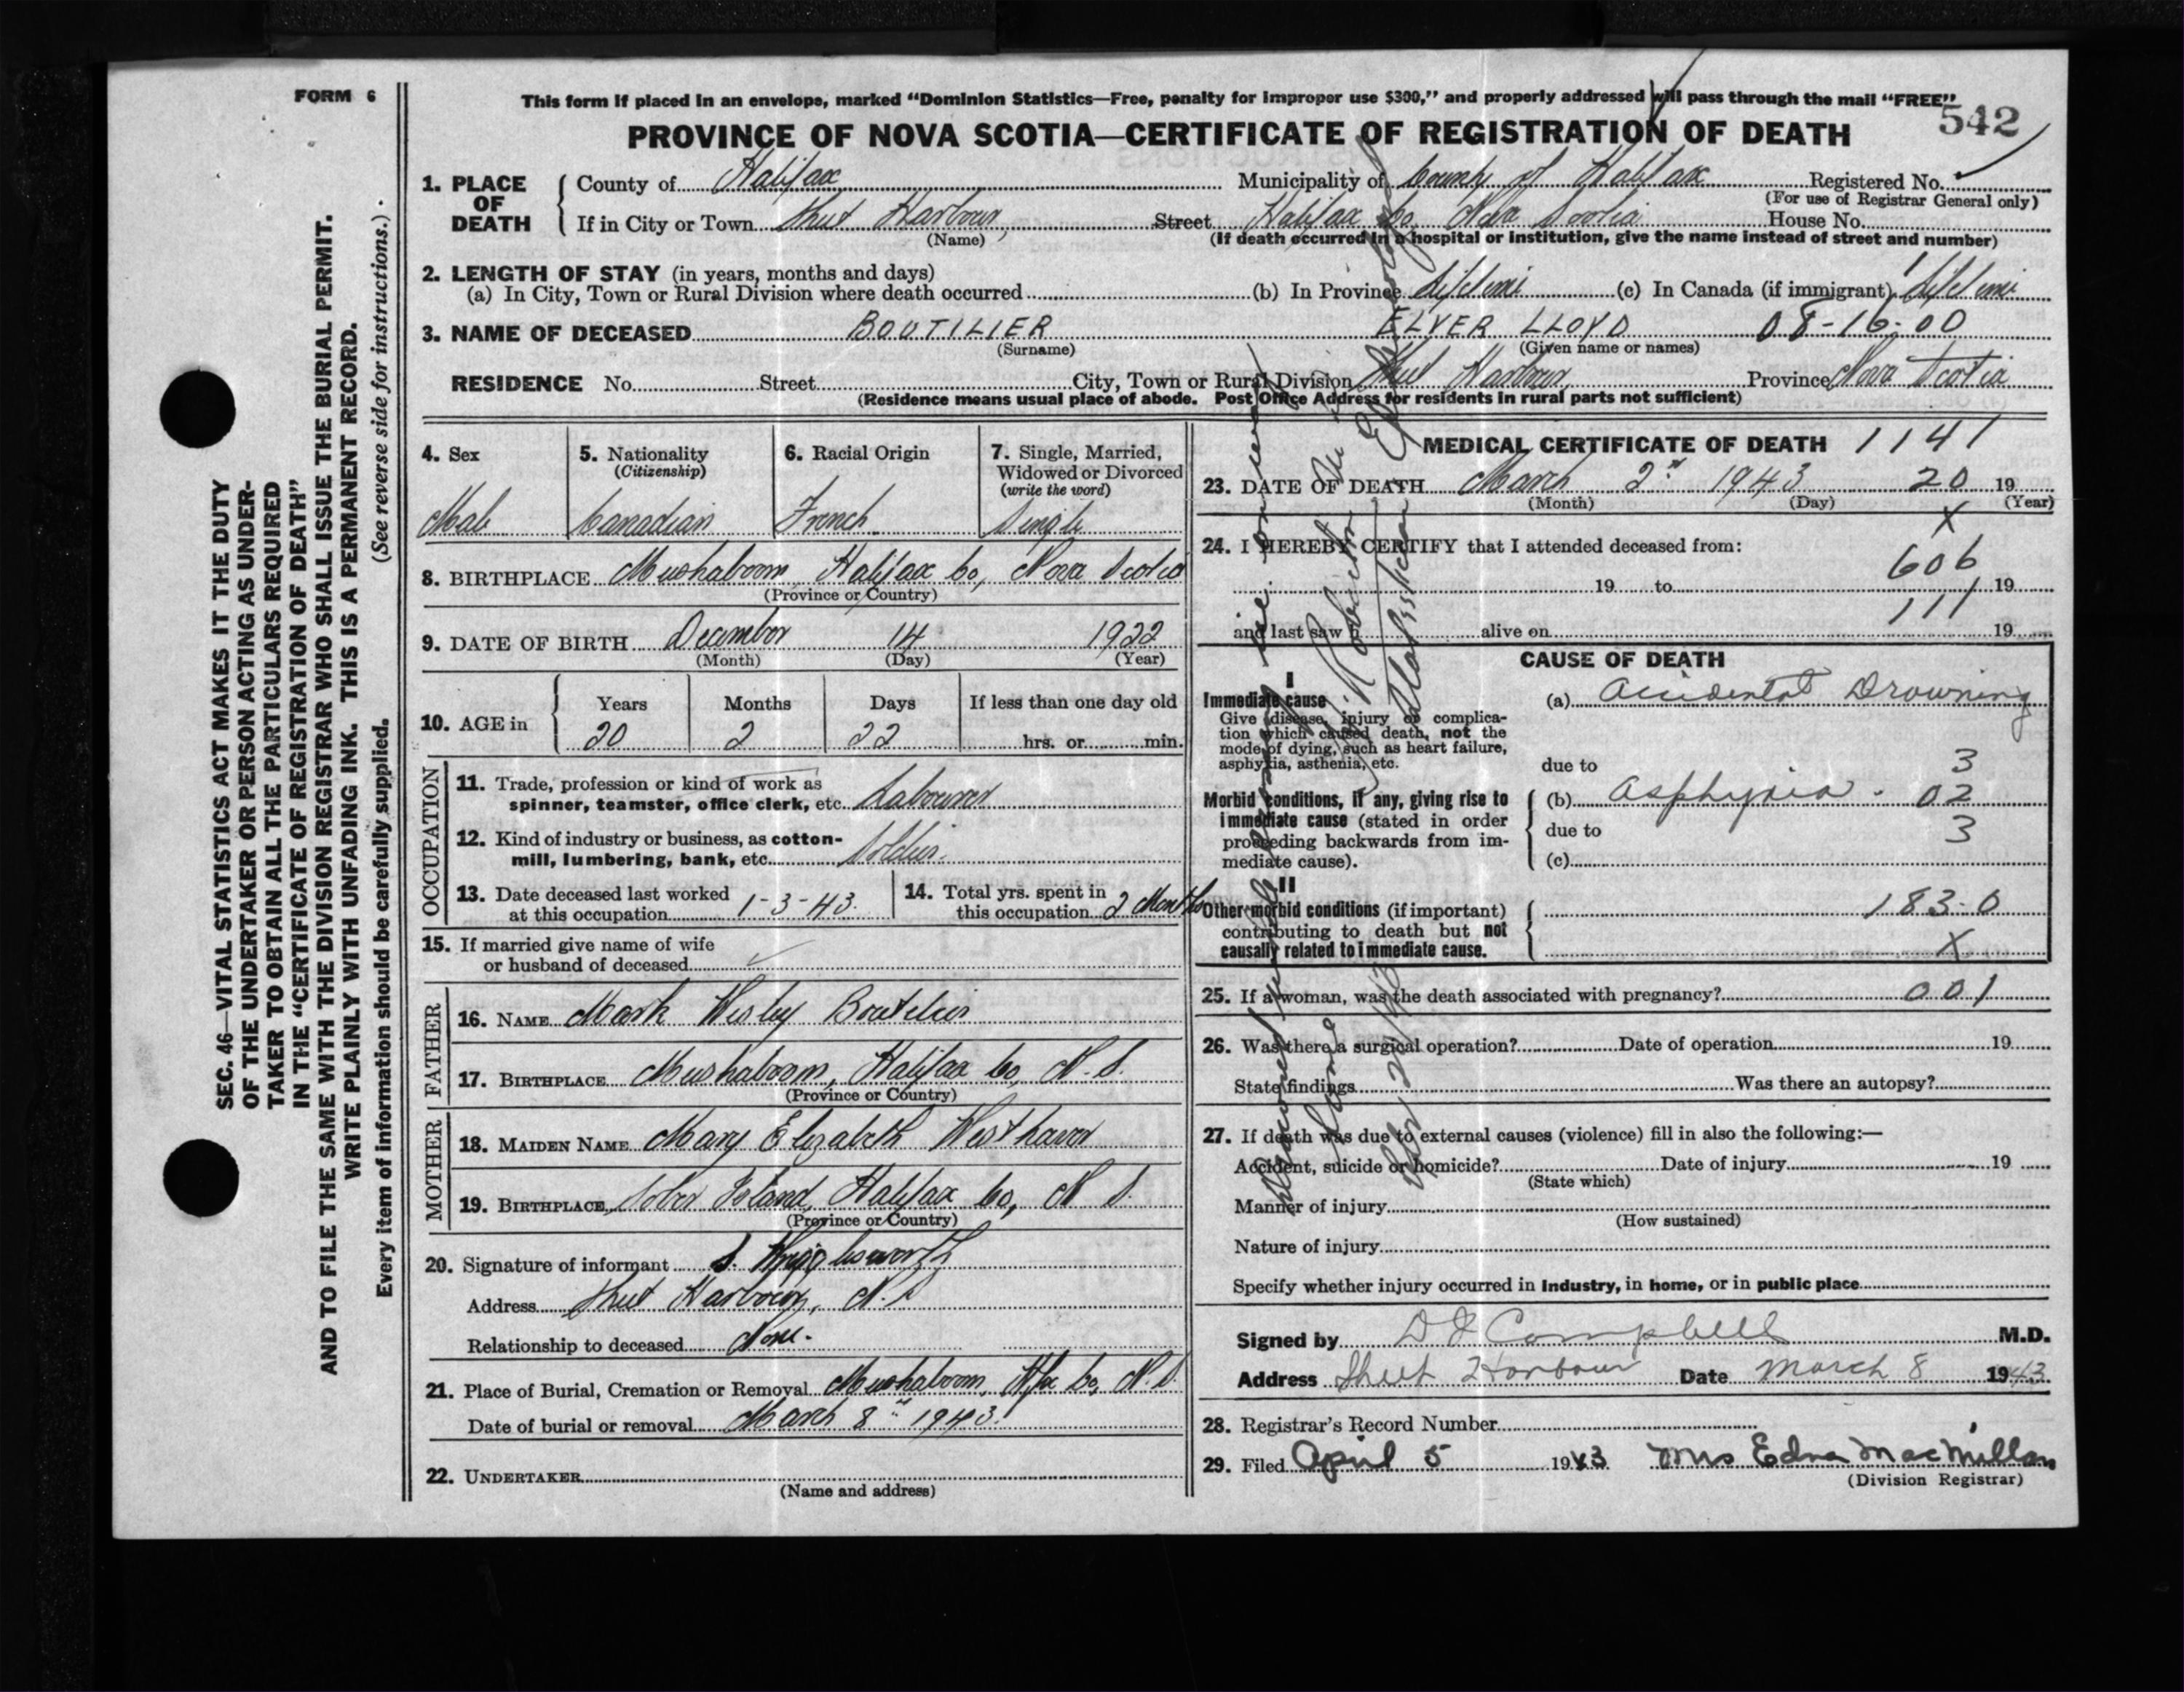 FORM 6
This form if placed in an envelope, marked "Dominion Statistics—Free, penalty for improper use $300," and properly addressed will pass through the mail "FREE"
542
PROVINCE OF NOVA SCOTIA—CERTIFICATE OF REGISTRATION OF DEATH
SEC. 46—VITAL STATISTICS ACT MAKES IT THE DUTY
OF THE UNDERTAKER OR PERSON ACTING AS UNDER-
TAKER TO OBTAIN ALL THE PARTICULARS REQUIRED
IN THE "CERTIFICATE OF REGISTRATION OF DEATH"
AND TO FILE THE SAME WITH THE DIVISION REGISTRAR WHO SHALL ISSUE THE BURIAL PERMIT.
WRITE PLAINLY WITH UNFADING INK. THIS IS A PERMANENT RECORD.
Every item of information should be carefully supplied. (See reverse side for instructions.)
1. PLACE OF DEATH
County of Halifax Municipality of County of Halifax Registered No.
(For use of Registrar General only)
If in City or Town Sheet Harbour Street Halifax Co Nova Scotia House No.
(Name) (If death occurred in a hospital or institution, give the name instead of street and number)
2. LENGTH OF STAY (in years, months and days)
(a) In City, Town or Rural Division where death occurred (b) In Province Lifetime (c) In Canada (if immigrant) Lifetime
3. NAME OF DECEASED BOUTILIER ELVER LLOYD 08-16-00
(Surname) (Given name or names)
RESIDENCE No. Street City, Town or Rural Division Sheet Harbour Province Nova Scotia
(Residence means usual place of abode. Post Office Address for residents in rural parts not sufficient)
4. Sex 5. Nationality 6. Racial Origin 7. Single, Married,
(Citizenship) Widowed or Divorced
(write the word)
Male Canadian French Single
8. BIRTHPLACE Mushaboom, Halifax Co, Nova Scotia
(Province or Country)
9. DATE OF BIRTH December 14 1922
(Month) (Day) (Year)
10. AGE in Years Months Days If less than one day old
20 2 22 hrs. or min.
OCCUPATION
11. Trade, profession or kind of work as
spinner, teamster, office clerk, etc. Labourer
12. Kind of industry or business, as cotton-
mill, lumbering, bank, etc. Soldier.
13. Date deceased last worked
at this occupation 1-3-43.
14. Total yrs. spent in
this occupation 2 Months
15. If married give name of wife
or husband of deceased
FATHER
16. NAME Mark Wesley Boutilier
17. BIRTHPLACE Mushaboom, Halifax Co, N.S.
(Province or Country)
MOTHER
18. MAIDEN NAME Mary Elizabeth Westhaver
19. BIRTHPLACE Sober Island, Halifax Co, N S.
(Province or Country)
20. Signature of informant
Address Sheet Harbour, N.S
Relationship to deceased None.
21. Place of Burial, Cremation or Removal Mushaboom, Hfx Co, N.S
Date of burial or removal March 8th 1943.
22. UNDERTAKER
(Name and address)
MEDICAL CERTIFICATE OF DEATH 1141
23. DATE OF DEATH March 2nd 1943 20 19
(Month) (Day) (Year)
X
24. I HEREBY CERTIFY that I attended deceased from:
606
19 to 19
111
and last saw h alive on 19
CAUSE OF DEATH
I
Immediate cause
Give disease, injury or complica-
tion which caused death, not the
mode of dying, such as heart failure,
asphyxia, asthenia, etc.
(a) Accidental Drowning
due to 3
Morbid conditions, if any, giving rise to
immediate cause (stated in order
proceeding backwards from im-
mediate cause).
(b) Asphyxia. 02
due to 3
(c)
II
Other morbid conditions (if important)
contributing to death but not
causally related to immediate cause.
183-0
X
25. If a woman, was the death associated with pregnancy? 001
26. Was there a surgical operation? Date of operation 19
State findings Was there an autopsy?
27. If death was due to external causes (violence) fill in also the following:—
Accident, suicide or homicide? Date of injury 19
(State which)
Manner of injury
(How sustained)
Nature of injury
Specify whether injury occurred in industry, in home, or in public place
Signed by D J Campbell M.D.
Address Sheet Harbour Date March 8 1943
28. Registrar's Record Number
29. Filed April 5 1943 Mrs Edna MacMillan
(Division Registrar)